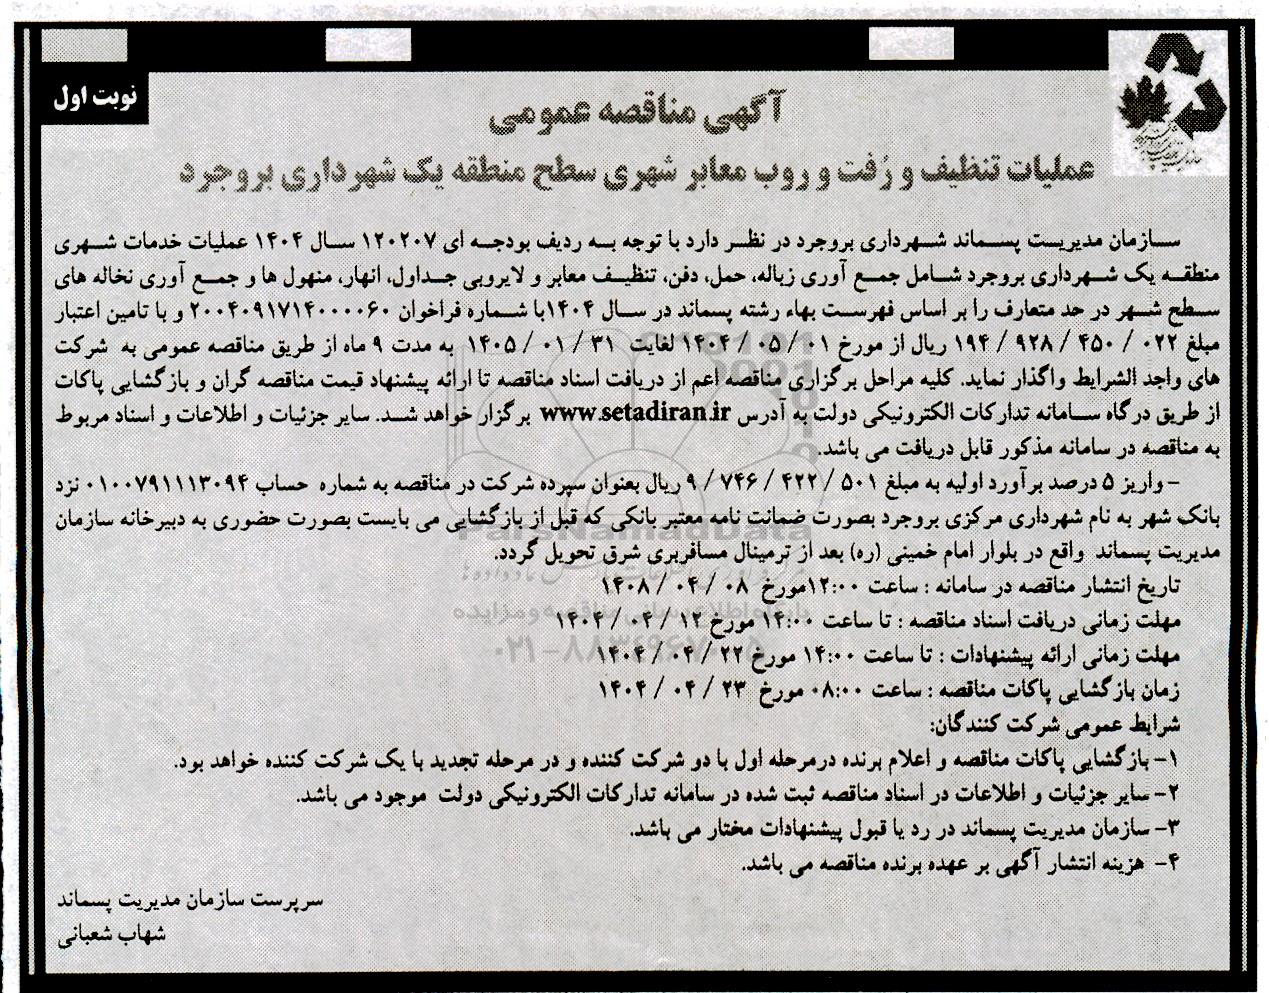 نوبت اول
آگهی مناقصه عمومی
عملیات تنظیف و رُفت و روب معابر شهری سطح منطقه یک شهرداری بروجرد
سازمان مدیریت پسماند شهرداری بروجرد در نظر دارد با توجه به ردیف بودجه ای ۱۲۰۲۰۷ سال ۱۴۰۴ عملیات خدمات شهری
منطقه یک شهرداری بروجرد شامل جمع آوری زباله، حمل، دفن، تنظیف معابر و لایروبی جداول، انهار، منهول ها و جمع آوری نخاله های
سطح شهر در حد متعارف را بر اساس فهرست بهاء رشته پسماند در سال ۱۴۰۴با شماره فراخوان ۲۰۰۴۰۹۱۷۱۴۰۰۰۰۶۰ و با تامین اعتبار
مبلغ ۰۲۲ / ۴۵۰ / ۹۲۸ / ۱۹۴ ریال از مورخ ۰۱ / ۰۵ / ۱۴۰۴ لغایت ۳۱ / ۰۱ / ۱۴۰۵ به مدت ۹ ماه از طریق مناقصه عمومی به شرکت
های واجد الشرایط واگذار نماید. کلیه مراحل برگزاری مناقصه اعم از دریافت اسناد مناقصه تا ارائه پیشنهاد قیمت مناقصه گران و بازگشایی پاکات
از طریق درگاه سامانه تدارکات الکترونیکی دولت به آدرس www.setadiran.ir برگزار خواهد شد. سایر جزئیات و اطلاعات و اسناد مربوط
به مناقصه در سامانه مذکور قابل دریافت می باشد.
-واریز ۵ درصد برآورد اولیه به مبلغ ۵۰۱ / ۴۲۲ / ۷۴۶ / ۹ ریال بعنوان سپرده شرکت در مناقصه به شماره حساب ۰۱۰۰۷۹۱۱۱۳۰۹۴ نزد
بانک شهر به نام شهرداری مرکزی بروجرد بصورت ضمانت نامه معتبر بانکی که قبل از بازگشایی می بایست بصورت حضوری به دبیرخانه سازمان
مدیریت پسماند واقع در بلوار امام خمینی (ره) بعد از ترمینال مسافربری شرق تحویل گردد.
تاریخ انتشار مناقصه در سامانه : ساعت ۱۲:۰۰مورخ ۰۸ / ۰۴ / ۱۴۰۸
مهلت زمانی دریافت اسناد مناقصه : تا ساعت ۱۴:۰۰ مورخ ۱۲ / ۰۴ / ۱۴۰۴
مهلت زمانی ارائه پیشنهادات : تا ساعت ۱۴:۰۰ مورخ ۲۲ / ۰۴ / ۱۴۰۴
زمان بازگشایی پاکات مناقصه : ساعت ۰۸:۰۰ مورخ ۲۳ / ۰۴ / ۱۴۰۴
شرایط عمومی شرکت کنندگان:
۱- بازگشایی پاکات مناقصه و اعلام برنده درمرحله اول با دو شرکت کننده و در مرحله تجدید با یک شرکت کننده خواهد بود.
۲- سایر جزئیات و اطلاعات در اسناد مناقصه ثبت شده در سامانه تدارکات الکترونیکی دولت موجود می باشد.
۳- سازمان مدیریت پسماند در رد یا قبول پیشنهادات مختار می باشد.
۴- هزینه انتشار آگهی بر عهده برنده مناقصه می باشد.
سرپرست سازمان مدیریت پسماند
شهاب شعبانی
ParsNamadData
پایگاه اطلاع رسانی مناقصه و مزایده